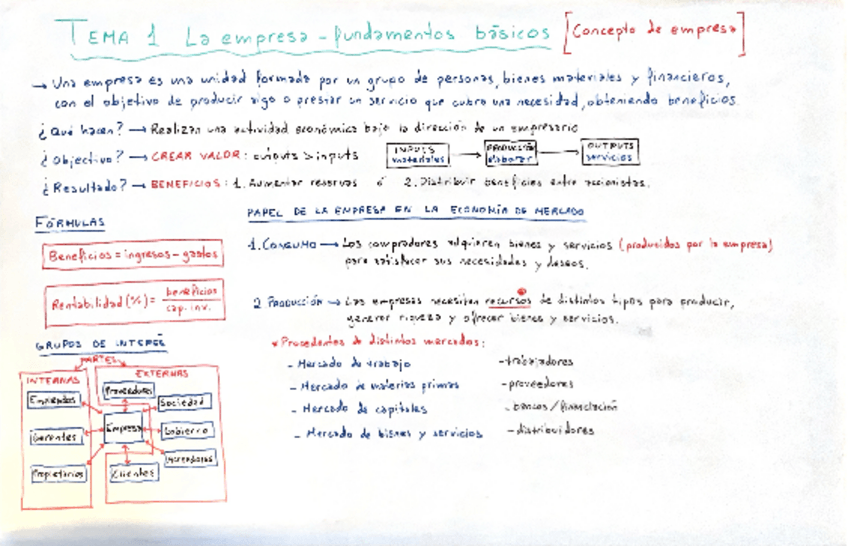 TEMA 1 La empresa - fundamentos básicos [Concepto de empresa]
→ Una empresa es una unidad formada por un grupo de personas, bienes materiales y financieros,
con el objetivo de producir algo o prestar un servicio que cubra una necesidad, obteniendo beneficios.
¿Qué hacen? → Realizan una actividad económica bajo la dirección de un empresario
¿Objectivo? → CREAR VALOR: outputs > inputs
INPUTS materiales → PRODUCCIÓN elaborar → OUTPUTS servicios
¿Resultado? → BENEFICIOS: 1. Aumentar reservas ó 2. Distribuir beneficios entre accionistas.
FÓRMULAS
Beneficios = ingresos - gastos
Rentabilidad (%) = beneficios / cap. inv.
GRUPOS DE INTERÉS
PARTES
INTERNAS
Empleados
Gerentes
Propietarios
EXTERNAS
Proveedores
Sociedad
Empresa
Gobierno
Acreedores
Clientes
PAPEL DE LA EMPRESA EN LA ECONOMÍA DE MERCADO
1. CONSUMO → Los compradores adquieren bienes y servicios (producidos por la empresa)
para satisfacer sus necesidades y deseos.
2 PRODUCCIÓN → Las empresas necesitan recursos de distintos tipos para producir,
generar riqueza y ofrecer bienes y servicios.
* Procedentes de distintos mercados:
- Mercado de trabajo - trabajadores
- Mercado de materias primas - proveedores
- Mercado de capitales - bancos/financiación
- Mercado de bienes y servicios - distribuidores